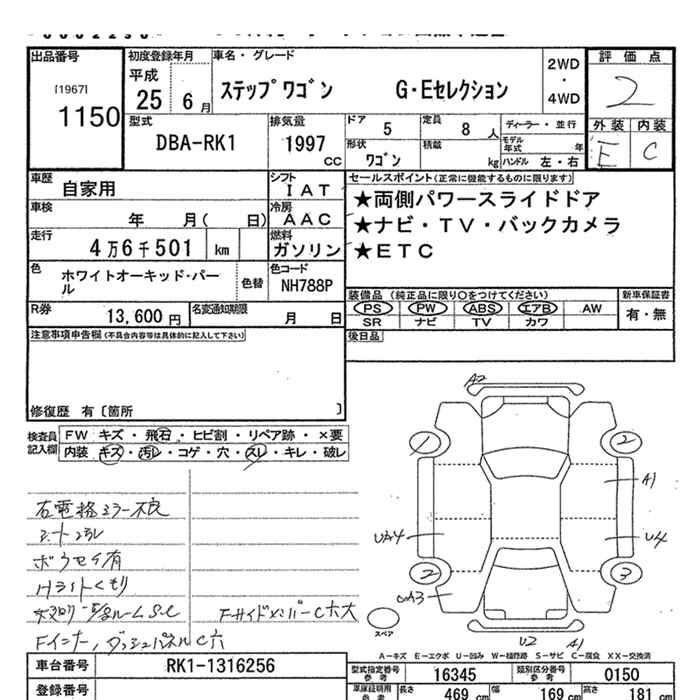 出品番号 初度登録年月 車名・グレード 評価点
[1967] 平成 2WD
1150 25 6月 ステップワゴン G・Eセレクション ・ 2
4WD
型式 排気量 ドア 5 定員 8人 ディーラー・並行 外装 内装
DBA-RK1 1997 cc 形状 ワゴン 積載 kg モデル年式 年 E C
ハンドル 左・右
車歴 自家用 シフト IAT セールスポイント(正常に機能するものに限ります)
車検 年 月( 日) 冷房 AAC ★両側パワースライドドア
走行 4万6千501 km 燃料 ガソリン ★ナビ・TV・バックカメラ
★ETC
色 ホワイトオーキッド・パール 色替 色コード NH788P
装備品 (純正品に限り○をつけてください) 新車保証書
PS PW ABS エアB AW 有・無
SR ナビ TV カワ
R券 13,600円 名変通知期限 月 日
注意事項申告欄(不具合内容等は具体的に記入して下さい) 後日品
修復歴 有〔箇所 〕
検査員記入欄 FW キズ・飛石・ヒビ割・リペア跡・×要
内装 キズ・汚レ・コゲ・穴・スレ・キレ・破レ
A2
1 2
A1
U4
2 3
右電格ミラー不良
シート汚レ
ボウセイ有
Hライトくもり
Fサイドメンバー C穴大
Fインナー,ダッシュパネルC穴
スペア
U2 A1
A-キズ E-エクボ U-凹み W-補修跡 S-サビ C-腐食 XX-交換済
車台番号 RK1-1316256 型式指定番号 参考 16345 類別区分番号 参考 0150
登録番号 車庫証明用 参考 長さ 469 cm 幅 169 cm 高さ 181 cm